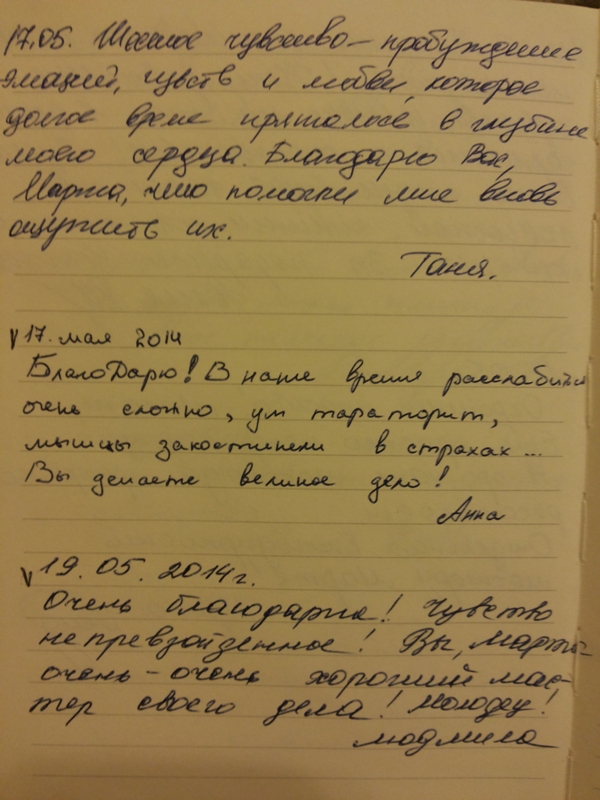 17.05. Шасное чувство – пробуждение
эмаций, чувств и любви, которое
долгое время пряталось в глубине
моего сердца. Благодарю Вас,
Марта, что помогли мне вновь
ощутить их.
Таня.
17. мая 2014
БлагоДарю! В наше время расслабиться
очень сложно, ум тараторит,
мышцы закостинели в страхах...
Вы делаете великое дело!
Анна
19.05.2014г.
Очень благодарна! Чувство
непревзойзенное! Вы, Марта
очень-очень хороший мас-
тер своего дела! Молодец!
Людмила